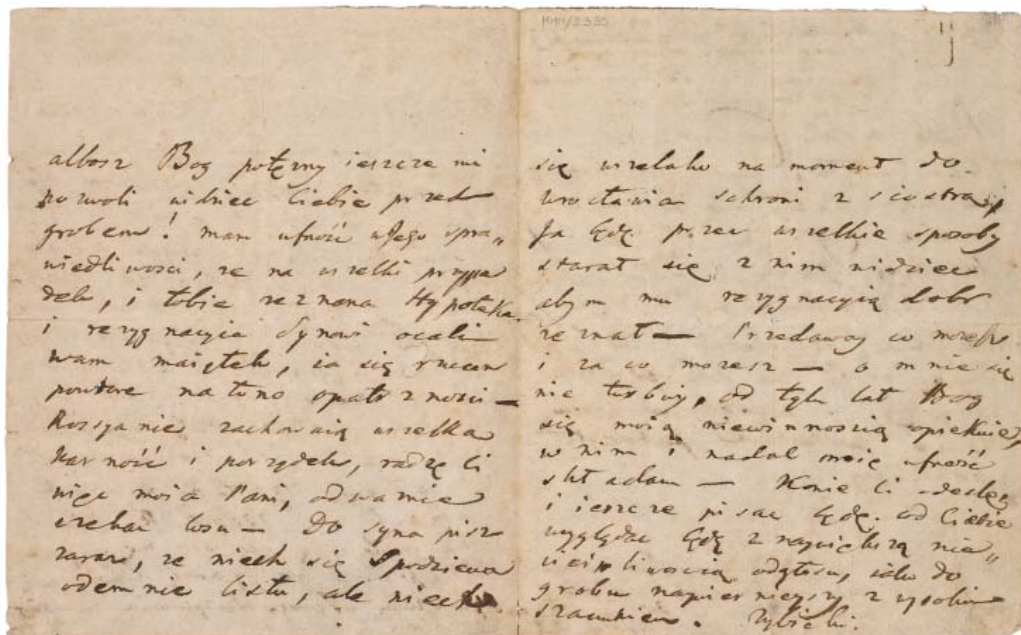 MNW/2335
albosz Bog potęzny ieszcze mi
pozwoli widziec Ciebie przed
grobem! mam ufność w Jego spra„
wiedliwosci, ze na wszelki przypa
dek, i tobie zeznana Hypoteka
i rezygnacyia Synowi ocali
wam maiątek, ia się rzucam
powtore na łono opatrznosci —
Rossyanie zachowuią wszelka
karność i porządek, radzę Ci
więc moia Pani, odważnie
czekac losu — Do syna pisz
zaraz, ze niech się Spodziewa
odemnie listu, ale niech
się wszelako na moment do
Wrocławia schroni z siostrą,
Ja będę przez wszelkie sposoby
starał się z nim widziec
abym mu rezygnacyią dobr
zeznał — Przedaway co mozesz
i za co mozesz — o mnie się
nie turbuy, od tylu lat Bog
się moią niewinnoscią opiekuie,
w nim i nadal moię ufność
składam — Konie Ci odeslę,
i ieszcze pisac będę. od Ciebie
wyglądac będę z naywiększą nie„
cierpliwoscią odgłosu, iako do
grobu napierwieyszy z wysokim
szacunkiem. Wybicki.